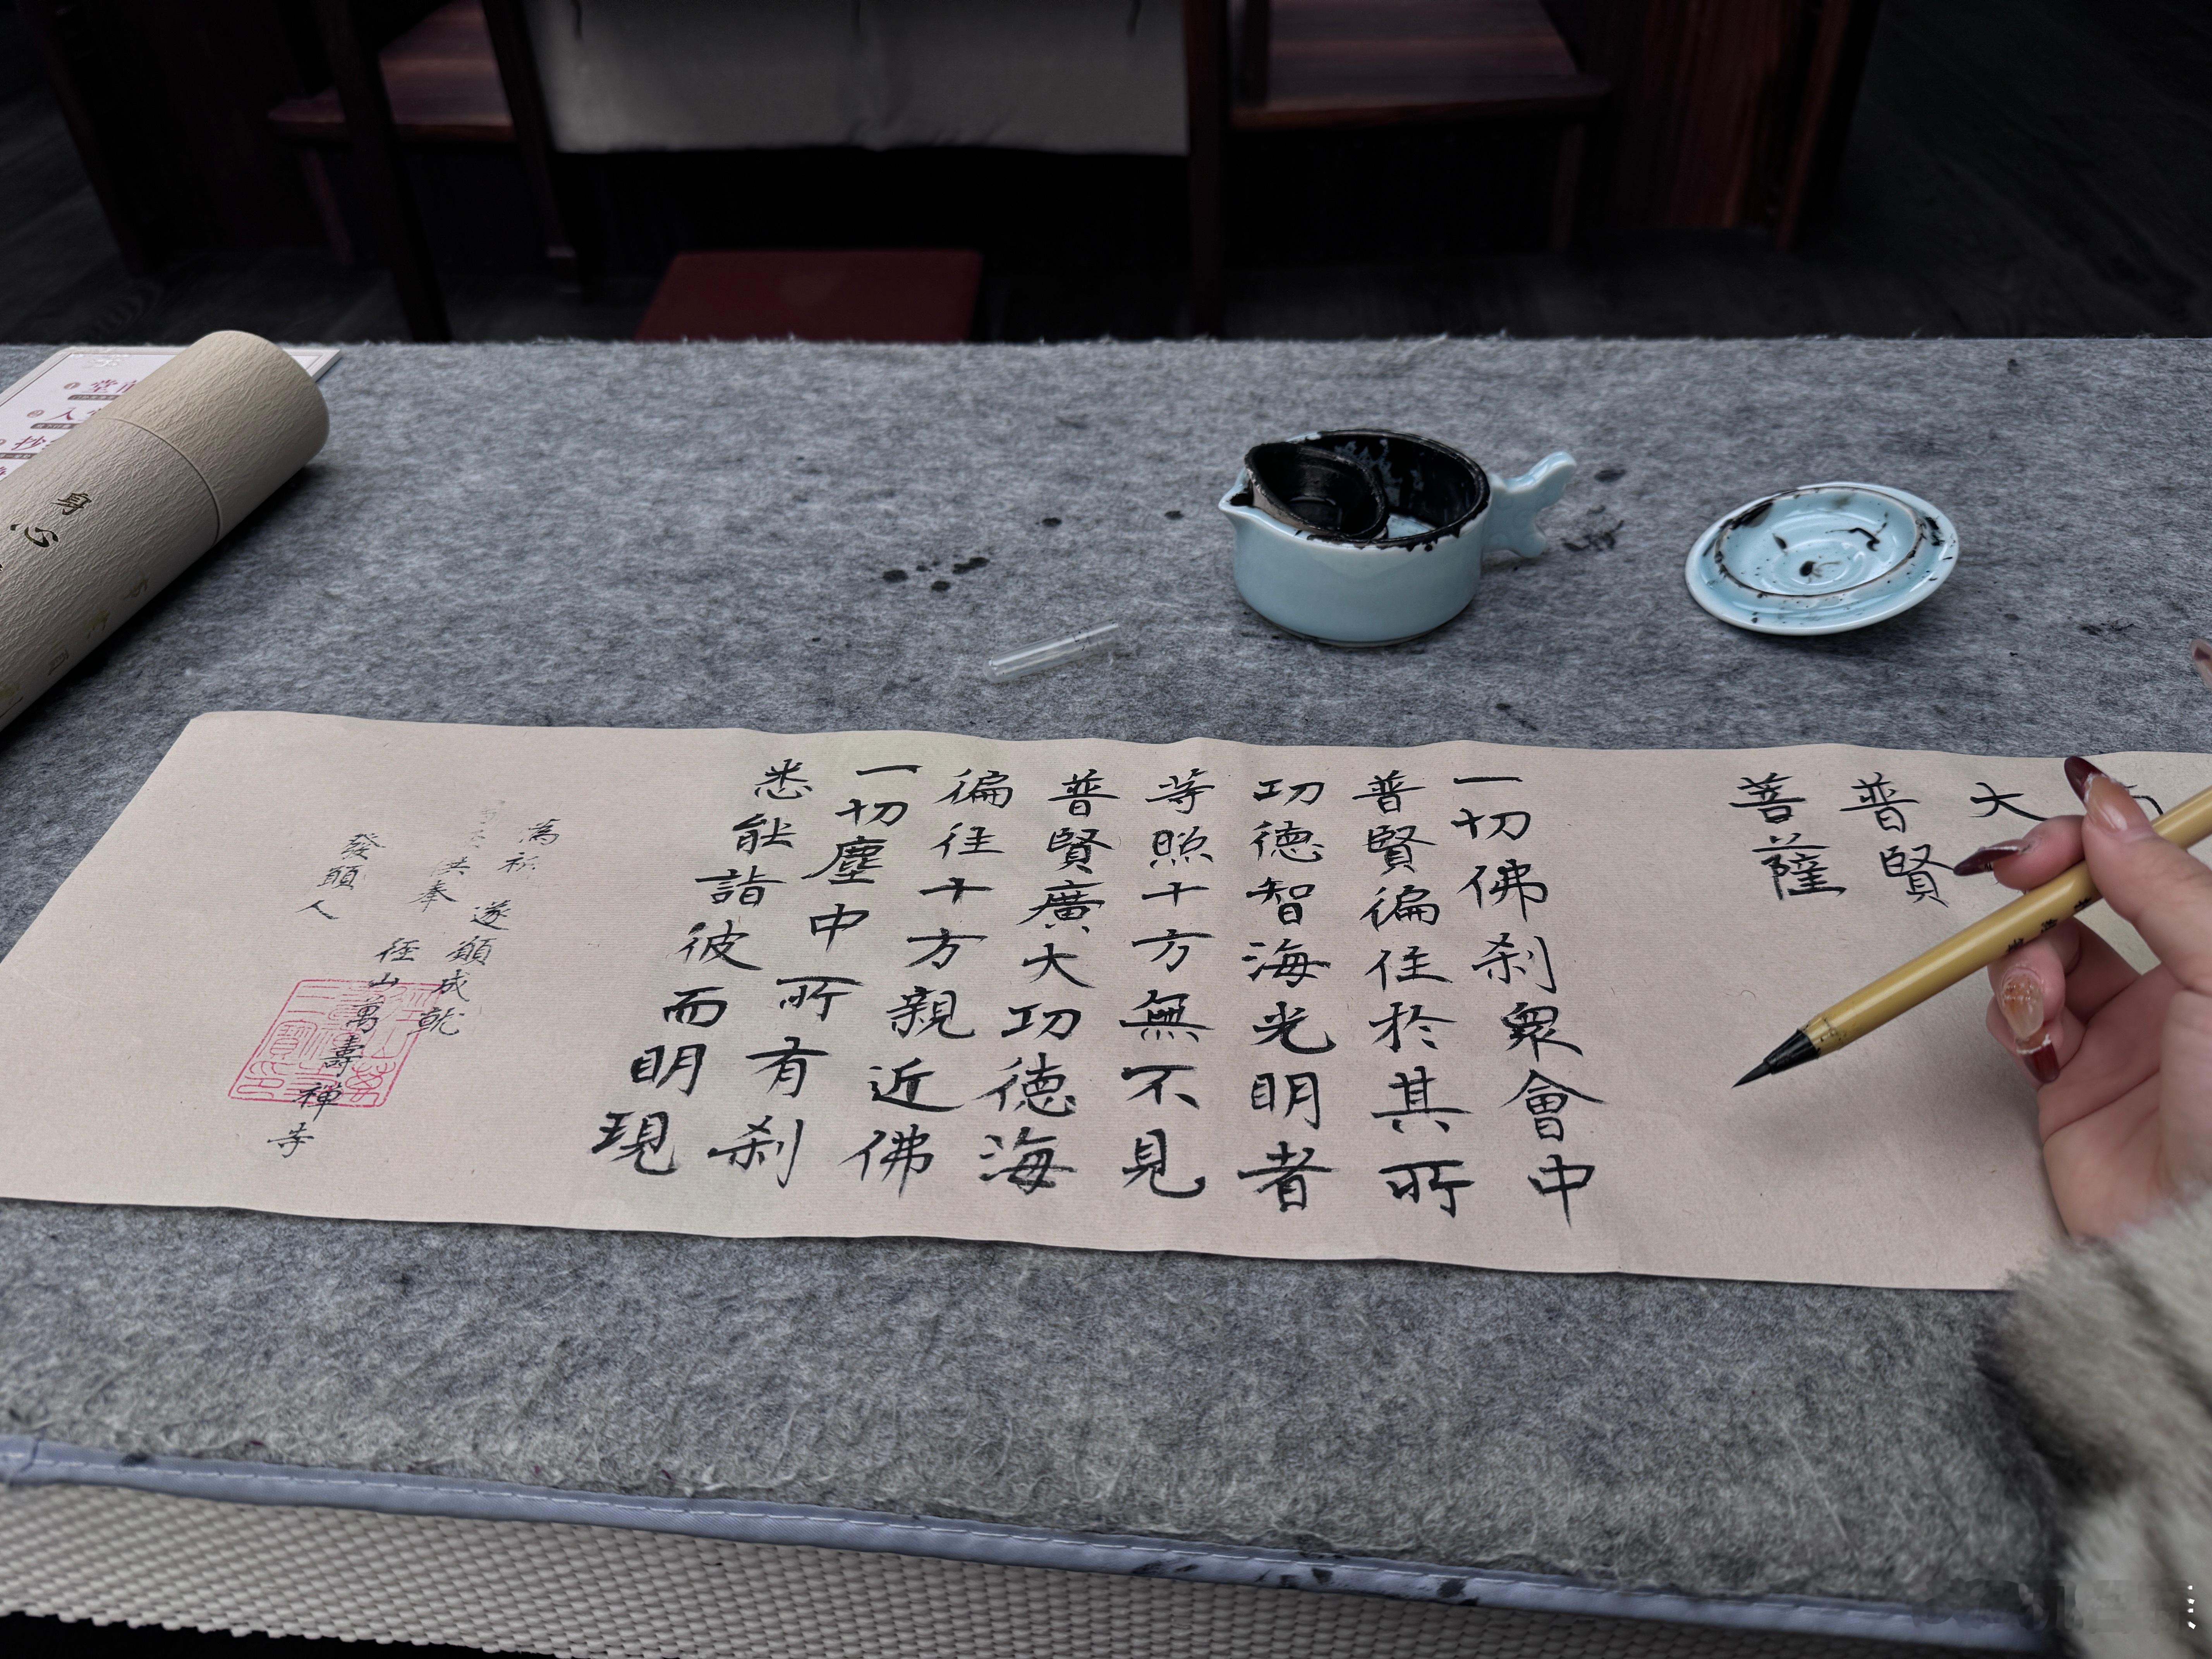 大
普賢
菩薩
一切佛刹衆會中
普賢徧住於其所
功德智海光明者
等照十方無不見
普賢廣大功德海
徧往十方親近佛
一切塵中所有刹
悉能詣彼而明現
為祈
遂願成就
洪奉
徑山萬壽禪寺
發願人
身心